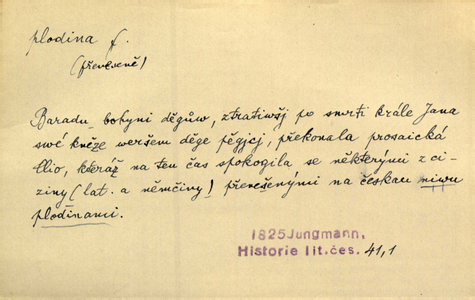 plodina f.
(přeneseně)
Baradu, bohyni děgůw, ztratiwšj po smrti krále Jana
swé kněze weršem děge pěgjcj, překonala prosaická
Clio, kteráž na ten čas spokogila se některými z ci-
ziny (lat. a němčiny) přenešenými na českau niwu
plodinami.
1825 Jungmann,
Historie lit.čes. 41,1